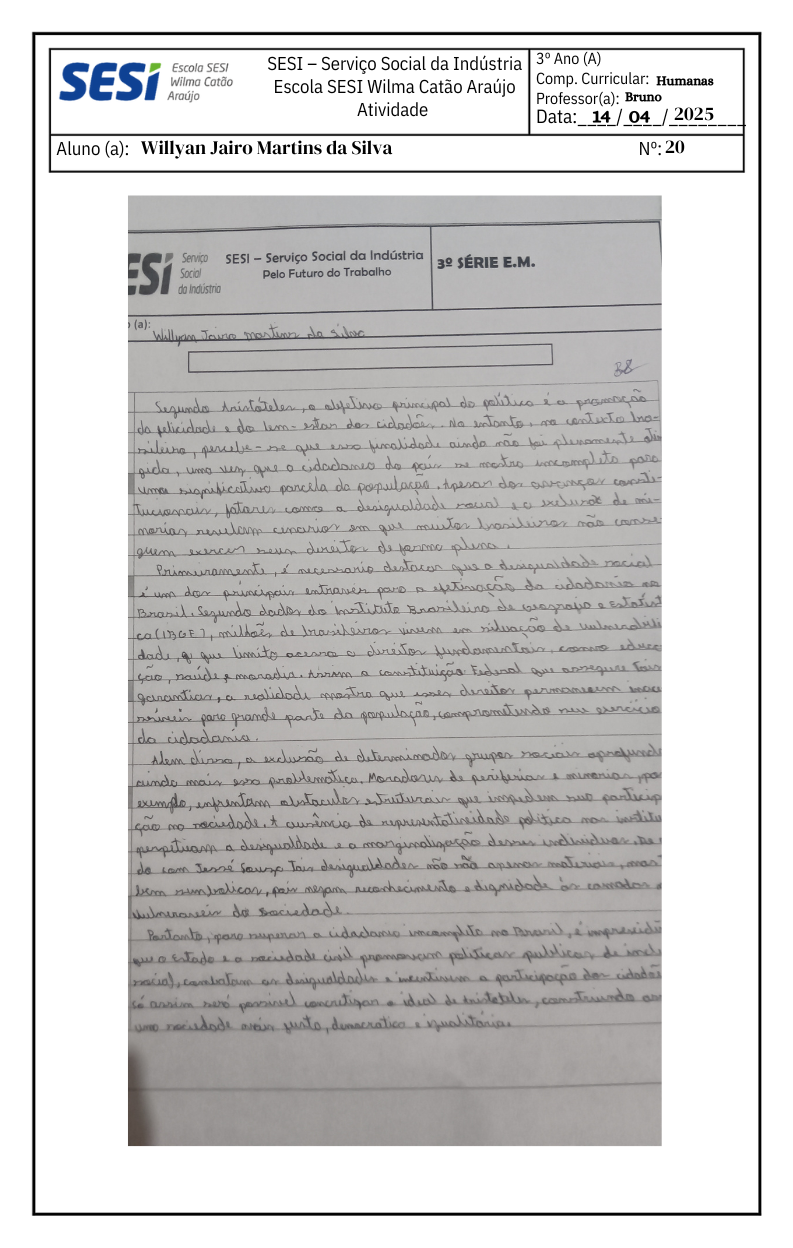 SESI
Escola SESI
Wilma Catão
Araújo
SESI – Serviço Social da Indústria
Escola SESI Wilma Catão Araújo
Atividade
3º Ano (A)
Comp. Curricular: Humanas
Professor(a): Bruno
Data: 14 / 04 / 2025
Aluno (a): Willyan Jairo Martins da Silva Nº: 20
ESI Serviço
Social
da Indústria
SESI – Serviço Social da Indústria
Pelo Futuro do Trabalho
3º SÉRIE E.M.
o (a): Willyan Jairo Martins da Silva
Segundo Aristóteles, o objetivo principal da política é a promoção
da felicidade e do bem-estar dos cidadãos. No entanto, no contexto bra-
sileiro, percebe-se que essa finalidade ainda não foi plenamente atin
gida, uma vez que a cidadania do país se mostra incompleta para
uma significativa parcela da população. Apesar dos avanços consti-
tucionais, fatores como a desigualdade social e a exclusão de mi-
norias revelam cenarios em que muitos brasileiros não conse
guem exercer seus direitos de forma plena.
Primeiramente, é necessario destacar que a desigualdade social
é um dos principais entraves para a efetivação da cidadania no
Brasil. Segundo dados do Instituto Brasileiro de Geografia e Estatist
ca (IBGE), milhões de brasileiros vivem em situação de vulnerabili
dade, que limita acesso a direitos fundamentais, como educa
ção, saúde e moradia. a constituição Federal que assegure tais
garantias, a realidade mostra que esses direitos permanecem inace
ssíveis para grande parte da população, comprometendo seu exercício
da cidadania.
Alem disso, a exclusão de determinados grupos sociais aprofund
ainda mais essa problemática. Moradores de periferias e minorias, po
exemplo, enfrentam obstaculos estruturais que impedem sua particip
ção na sociedade. A ausência de representatividade política nas institu
perpetuam a desigualdade e a marginalização desses individuos. De
do com Jessé Souza tais desigualdades não são apenas materiais, mas
bem simbolicas, pois negam reconhecimento e dignidade às camadas
vulneraveis da sociedade.
Portanto, para superar a cidadania incompleta no Brasil, é imprescidi
que o Estado e a sociedade civil promovam políticas publicas de incl
social, combatam as desigualdades e incentivem a participação dos cidadão
só assim será possivel concretizar o ideal de Aristóteles, construindo as
uma sociedade mais justa, democratica e igualitária.